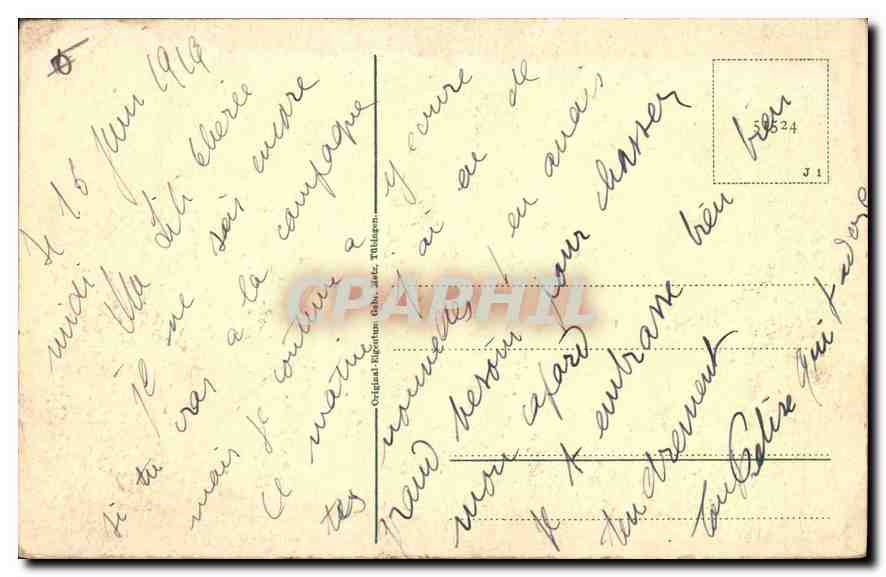 Le 15 Juin 1919
midi. Ma Lili chérie
Je ne sais encore
si tu vas a la campagne
mais je continue a y écrire
Ce matin j'ai eu de
tes nouvelles j'en avais
grand besoin pour chasser
mon cafard
Je t embrasse bien bien
tendrement
qui t adore
Original-Eigentum Gebr. Metz, Tübingen.
50524
J 1
CPARHIL